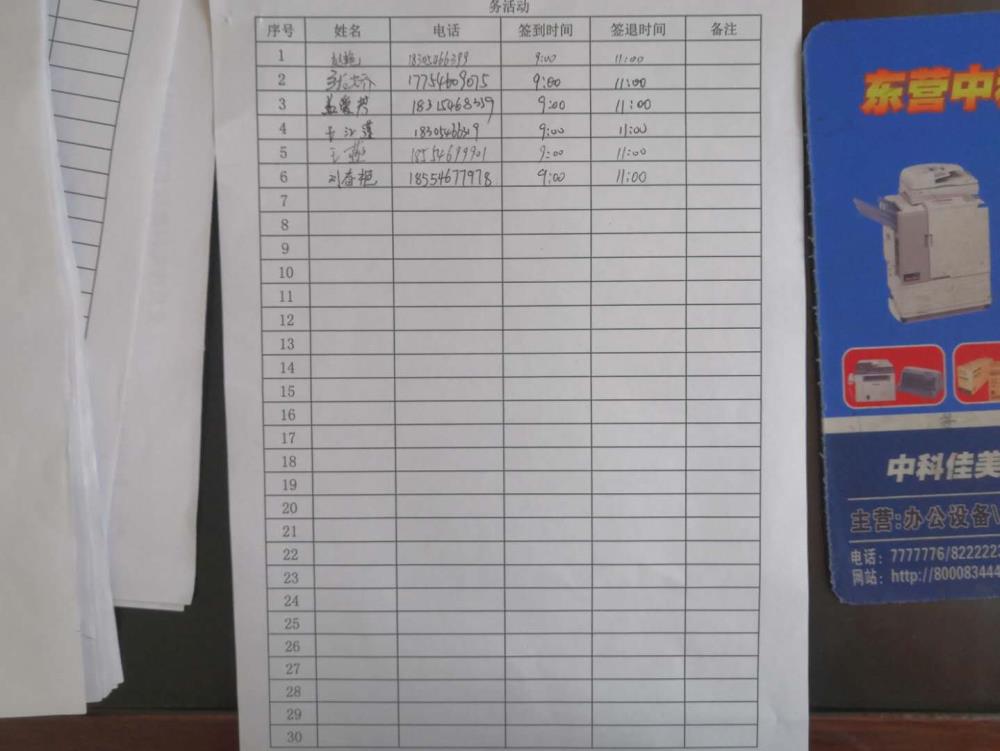 务活动
序号 姓名 电话 签到时间 签退时间 备注
1 18305466399 9:00 11:00
2 17754609075 9:00 11:00
3 盖爱芳 18315468339 9:00 11:00
4 9:00 11:00
5 王 18554699901 9:00 11:00
6 刘春艳 18554677978 9:00 11:00
7
8
9
10
11
12
13
14
15
16
17
18
19
20
21
22
23
24
25
26
27
28
29
30
东营中科
中科佳美
主营:办公设备\
电话: 7777776/8222223
网站: http://800083444